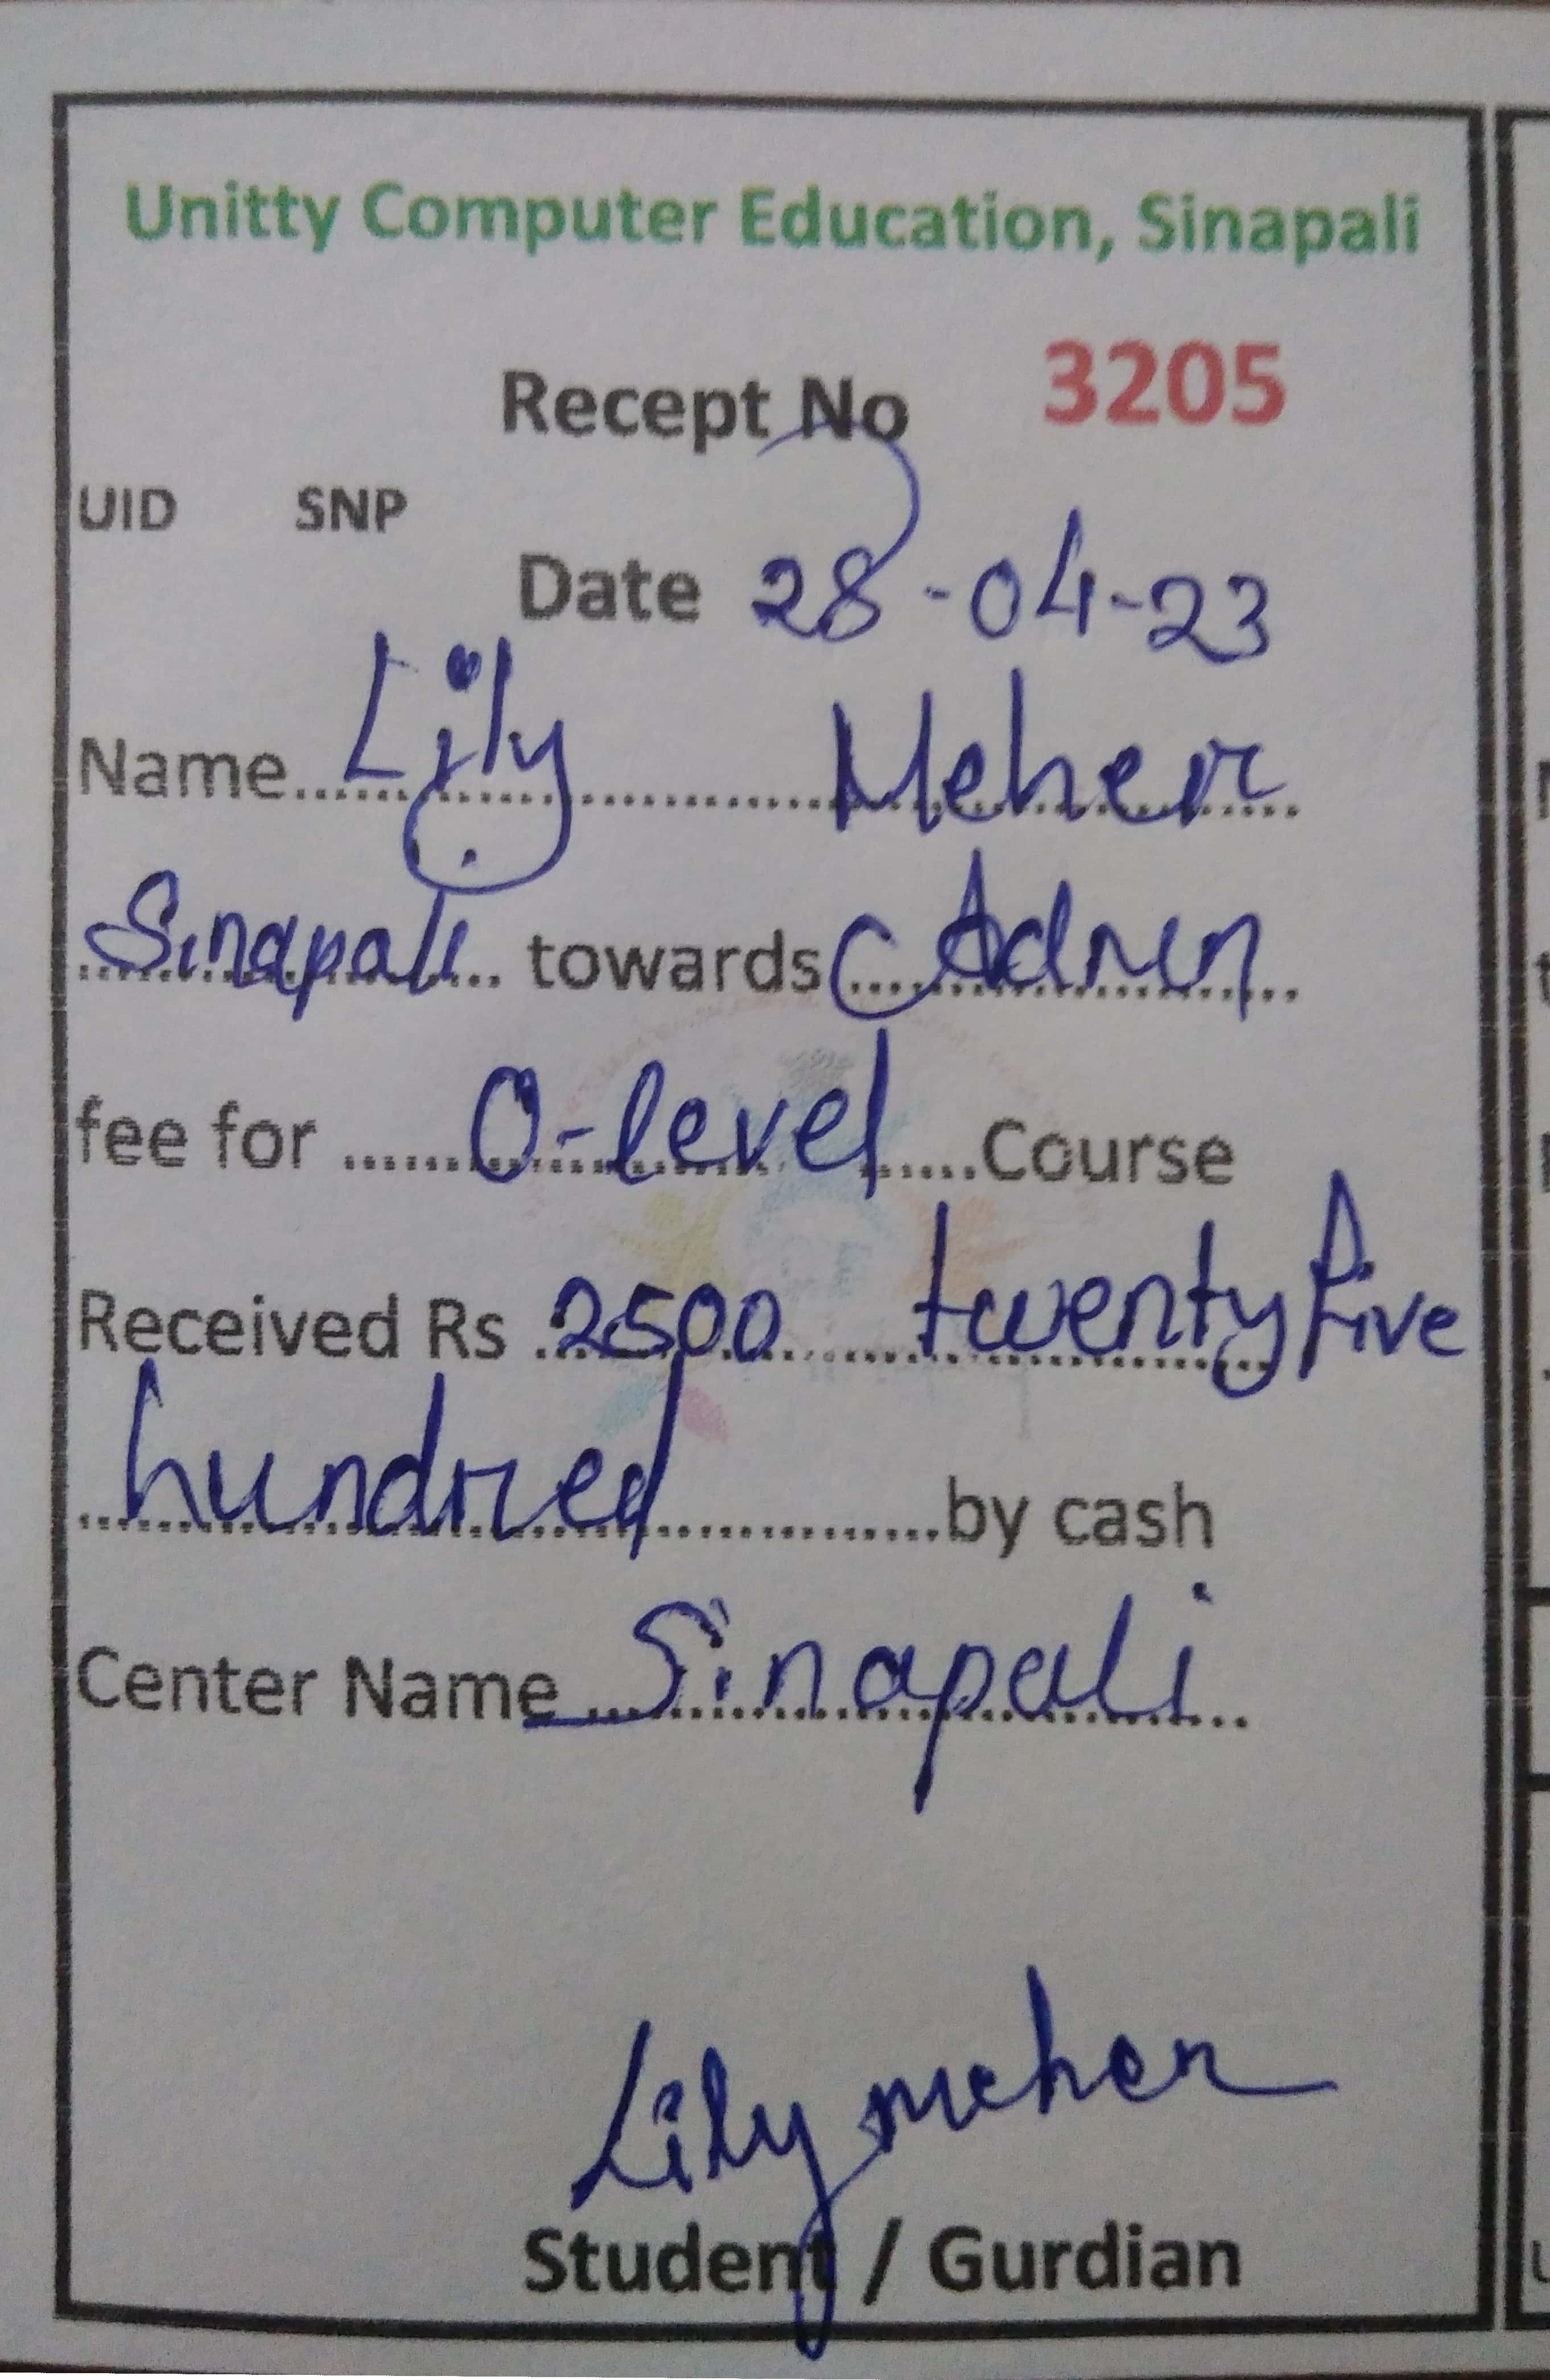 Unitty Computer Education, Sinapali
Recept No 3205
UID SNP
Date 28-04-23
Name...... Lily ............ Meher ......
Sinapali ... towards ... Admn ...
fee for ...... O-level ......Course
Received Rs ... 2500 ...... twenty five
... hundred ...............by cash
Center Name ... Sinapali ...
Lily meher
Student / Gurdian